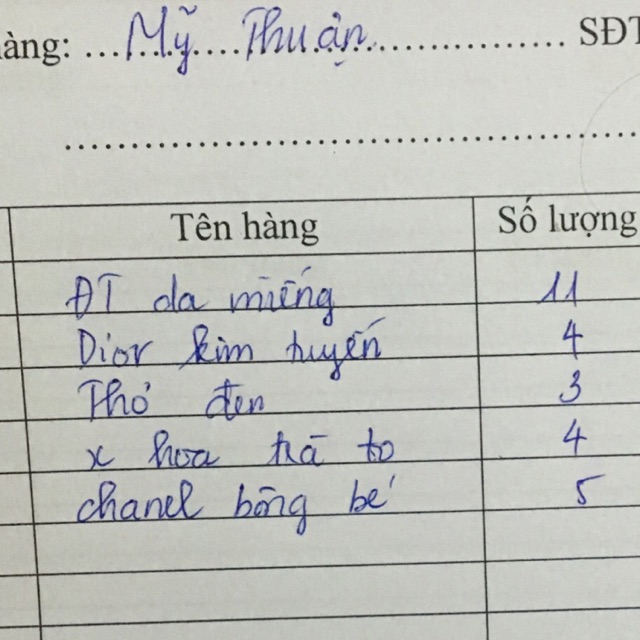 àng: Mỹ Thuận SĐT
Tên hàng Số lượng
ĐT da miếng 11
Dior kim tuyến 4
Thỏ đen 3
x hoa trà to 4
chanel bông bé 5